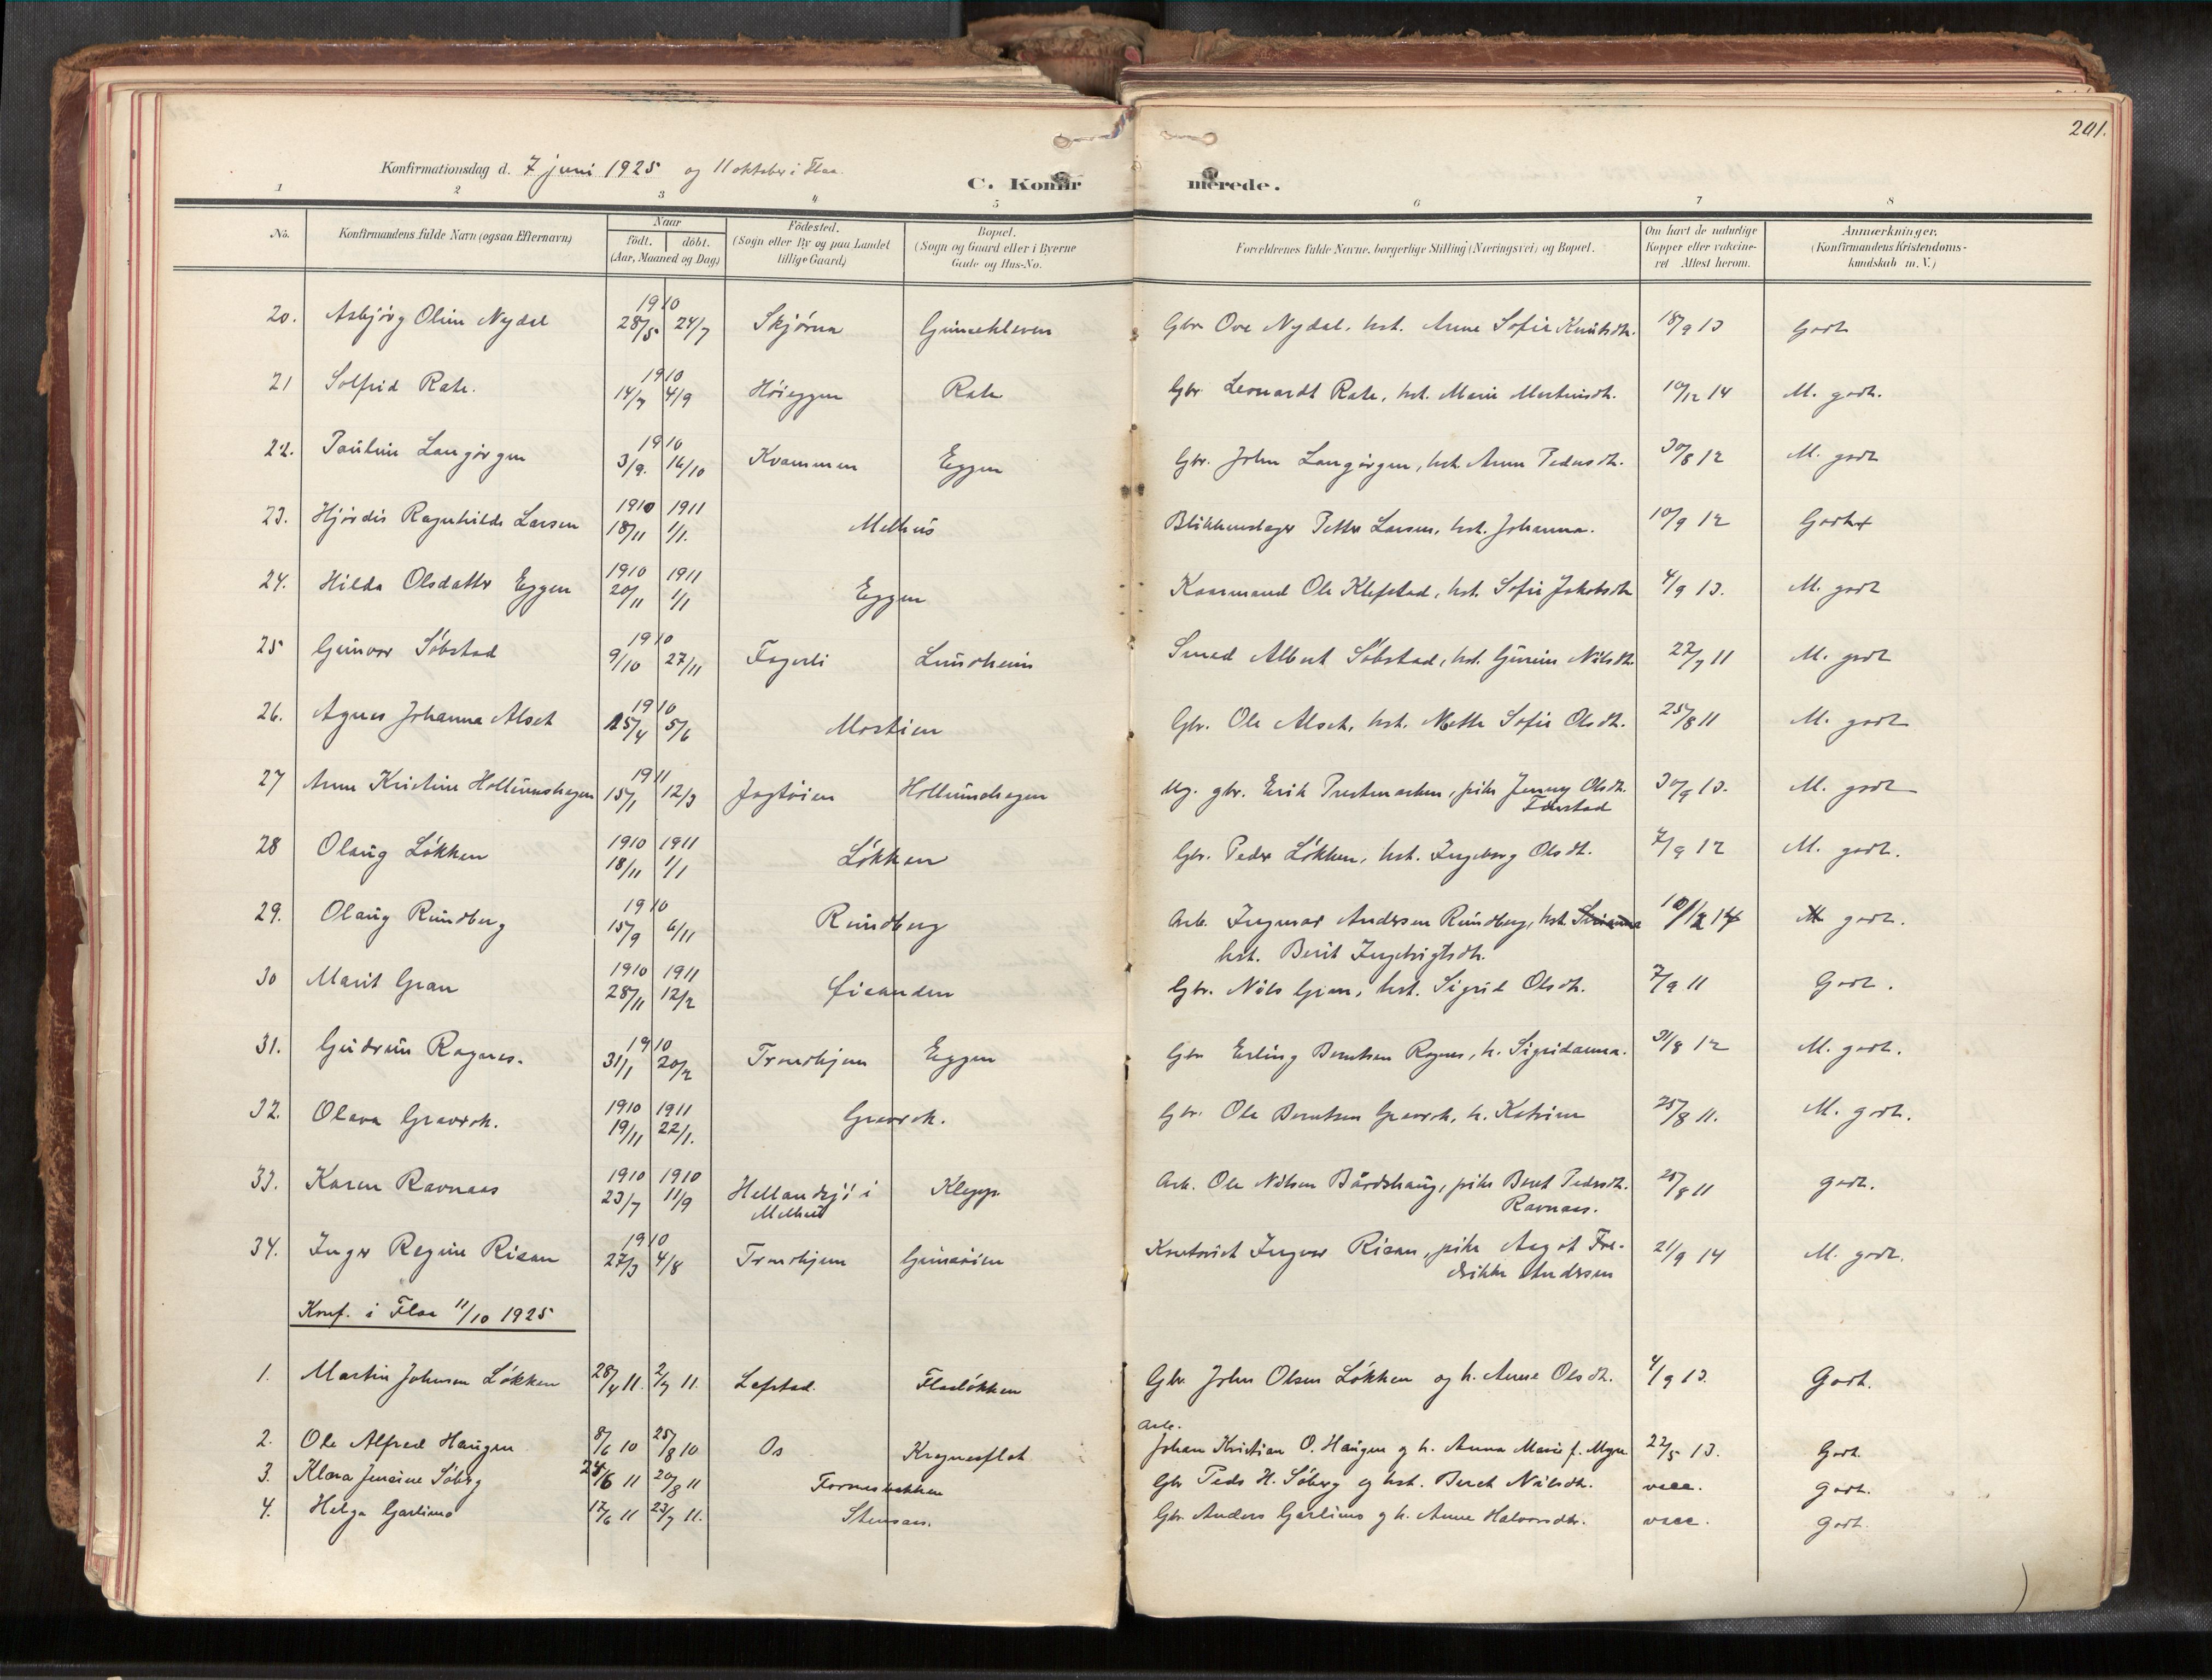 201.
Konfirmationsdag d. 7 juni 1925 og 11 oktober i Flaa.
C. Konfirmerede.
1 2 3 4 5 6 7 8
No. Konfirmandens fulde Navn (ogsaa Efternavn) Naar födt. döbt. (Aar, Maaned og Dag) Födested. (Sogn eller By og paa Landet tillige Gaard) Bopæl. (Sogn og Gaard eller i Byerne Gade og Hus-No. Forældrenes fulde Navne, borgerlige Stilling (Næringsvei) og Bopæl. Om havt de naturlige Kopper eller vakcineret Attest herom. Anmærkninger. (Konfirmandens Kristendomskundskab m. V.)
20. Asbjörg Oline Nydal 1910 28/5 24/7 Skjörna Gimsekleven Gbr Ove Nydal, hst. Anne Sofie Knutsdtr. 18/9 13 Godt
21 Solfrid Rate. 1910 14/7 4/9 Höieggen Rate Gbr Leonardt Rate, hst. Marie Martinsdt. 10/12 14 M. godt.
22. Pauline Langörgen 1910 3/9. 16/10 Kvammen Eggen Gbr. John Langörgen, hst. Anne Pedersdt. 30/8 12 M. godt
23. Hjördis Ragnhilda Larsen 1910 18/11 1911 1/1. Melhus Blikkenslager Petter Larsen, hst. Johanna. 10/9 12 Godt
24. Hilda Olsdatter Eggen 1910 20/11 1911 1/1 Eggen Ole Klefstad, hst. Sofie Jakobsdt 4/9 13. M. godt
25 Gunvor Söbstad 1910 9/10 27/11 Fagerli Lundheim Smed Albert Söbstad, hst. Gurine Nilsdt. 27/7 11 M. godt
26. Agnes Johanna Alset 1910 25/4 5/6 Mostien Gbr. Ole Alset, hst. Mette Sofie Olsdt. 25/8 11 M. godt
27 Anne Kristine Hollumshagen 1911 15/1 12/3 Jagtöien Hollumshagen Ug. gbr. Erik Prestmarken, pike Jenny Olsdt.
30/9 13. M. godt
28 Olaug Lökken 1910 18/11 1911 1/1 Lökken Gbr. Peder Lökken, hst. Ingeborg Olsdt. 7/9 12 M. godt.
29. Olaug Rundberg 1910 15/9 6/11 Rundberg Arb. Ingmar Andersen Rundberg, hst.
hst. Berit Ingebrigtsdt. 10/12 14 godt.
30 Marit Gran 1910 28/11 1911 12/2 Öisanden Gbr. Nils Gran, hst. Sigrid Olsdt. 7/9 11 Godt.
31. Gudrun Rognes. 1910 31/1 20/2 Trondhjem Eggen Gbr Erling Berntsen Rognes, h. Sigridanna. 31/8 12 M. godt.
32. Olava Gravrok. 1910 19/11 1911 22/1. Gravrok. Gbr. Ole Berntsen Gravrok, h. Katrine 25/8 11. M. godt.
33. Karen Ravnaas 1910 23/7 1910 11/9 Hellandsjö i
Melhus Klepp Arb. Ole Nilsen Bårdshaug, pike Beret Pedersdt.
Ravnaas. 25/8 11 godt.
34. Inger Regine Risan 1910 27/3 4/8 Trondhjem Gimsöien Kontorist Ingvar Risan, pike Aagot Fre-
drikke Andersen 21/9 14 M. godt.
Konf. i Flaa 11/10 1925
1. Martin Johnsen Lökken 28/4 11. 2/7 11. Lefstad. Flaalökken Gbr. John Olsen Lökken og h. Anne Olsdt. 4/9 13. Godt.
2. Ole Alfred Haugen 8/6 10 25/8 10 Os Kregnesflat Arb.
Johan Kristian O. Haugen og h. Anna Marie f. Myren 22/5 13. Godt.
3. Klara Söberg 24/6 11 20/8 11 Fornesbakken Gbr Peder H. Söberg og hst. Beret Nilsdt. vacc. godt.
4. Helga Garlimo 17/6 11 23/7 11. Stensaas. Gbr. Anders Garlimo og h. Anne Halvorsdtr. vacc. godt.